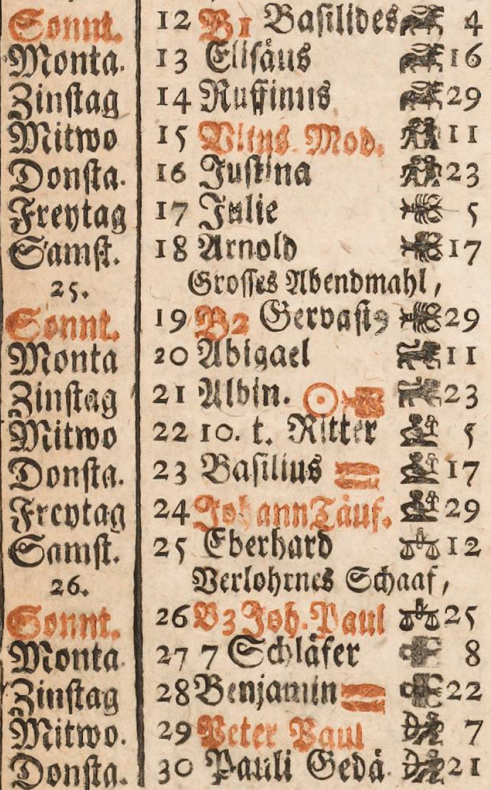 Sonnt. 12 B1 Basilides 4
Monta. 13 Elisäus 16
Zinstag 14 Ruffinus 29
Mitwo 15 Vitus Mod. 11
Donsta. 16 Justina 23
Freytag 17 Julie 5
Samst. 18 Arnold 17
25. Grosses Abendmahl,
Sonnt. 19 B2 Gervasi9 29
Monta 20 Abigael 11
Zinstag 21 Albin. ☉ 23
Mitwo 22 10. t. Ritter 5
Donsta. 23 Basilius 17
Freytag 24 Johann Täuf. 29
Samst. 25 Eberhard 12
26. Verlohrnes Schaaf,
Sonnt. 26 B3 Joh. Paul 25
Monta 27 7 Schläfer 8
Zinstag 28 Benjamin 22
Mitwo. 29 Peter Paul 7
Donsta. 30 Pauli Gedä. 21